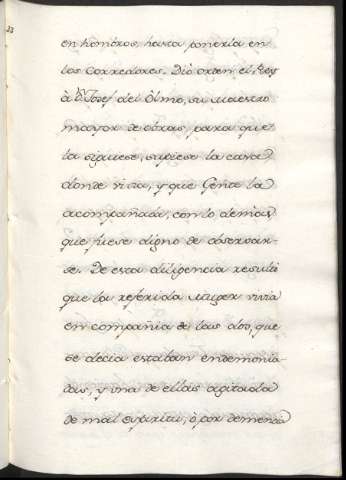 en hombros, hasta ponerla en
los corredores. Diò orden el Rey
à Dn. Josef del Olmo, su Maestro
mayor de obras, para que
la siguiese, supiese la casa
donde vivia, y que Gente la
acompañaba, con lo demas
que fuese digno de observar-
se. De esta diligencia resultò
que la referida Muger vivia
en compañia de las dos, que
se decia estaban endemonia-
das, y una de ellas agitada
de mal espiritu, ò por demencia